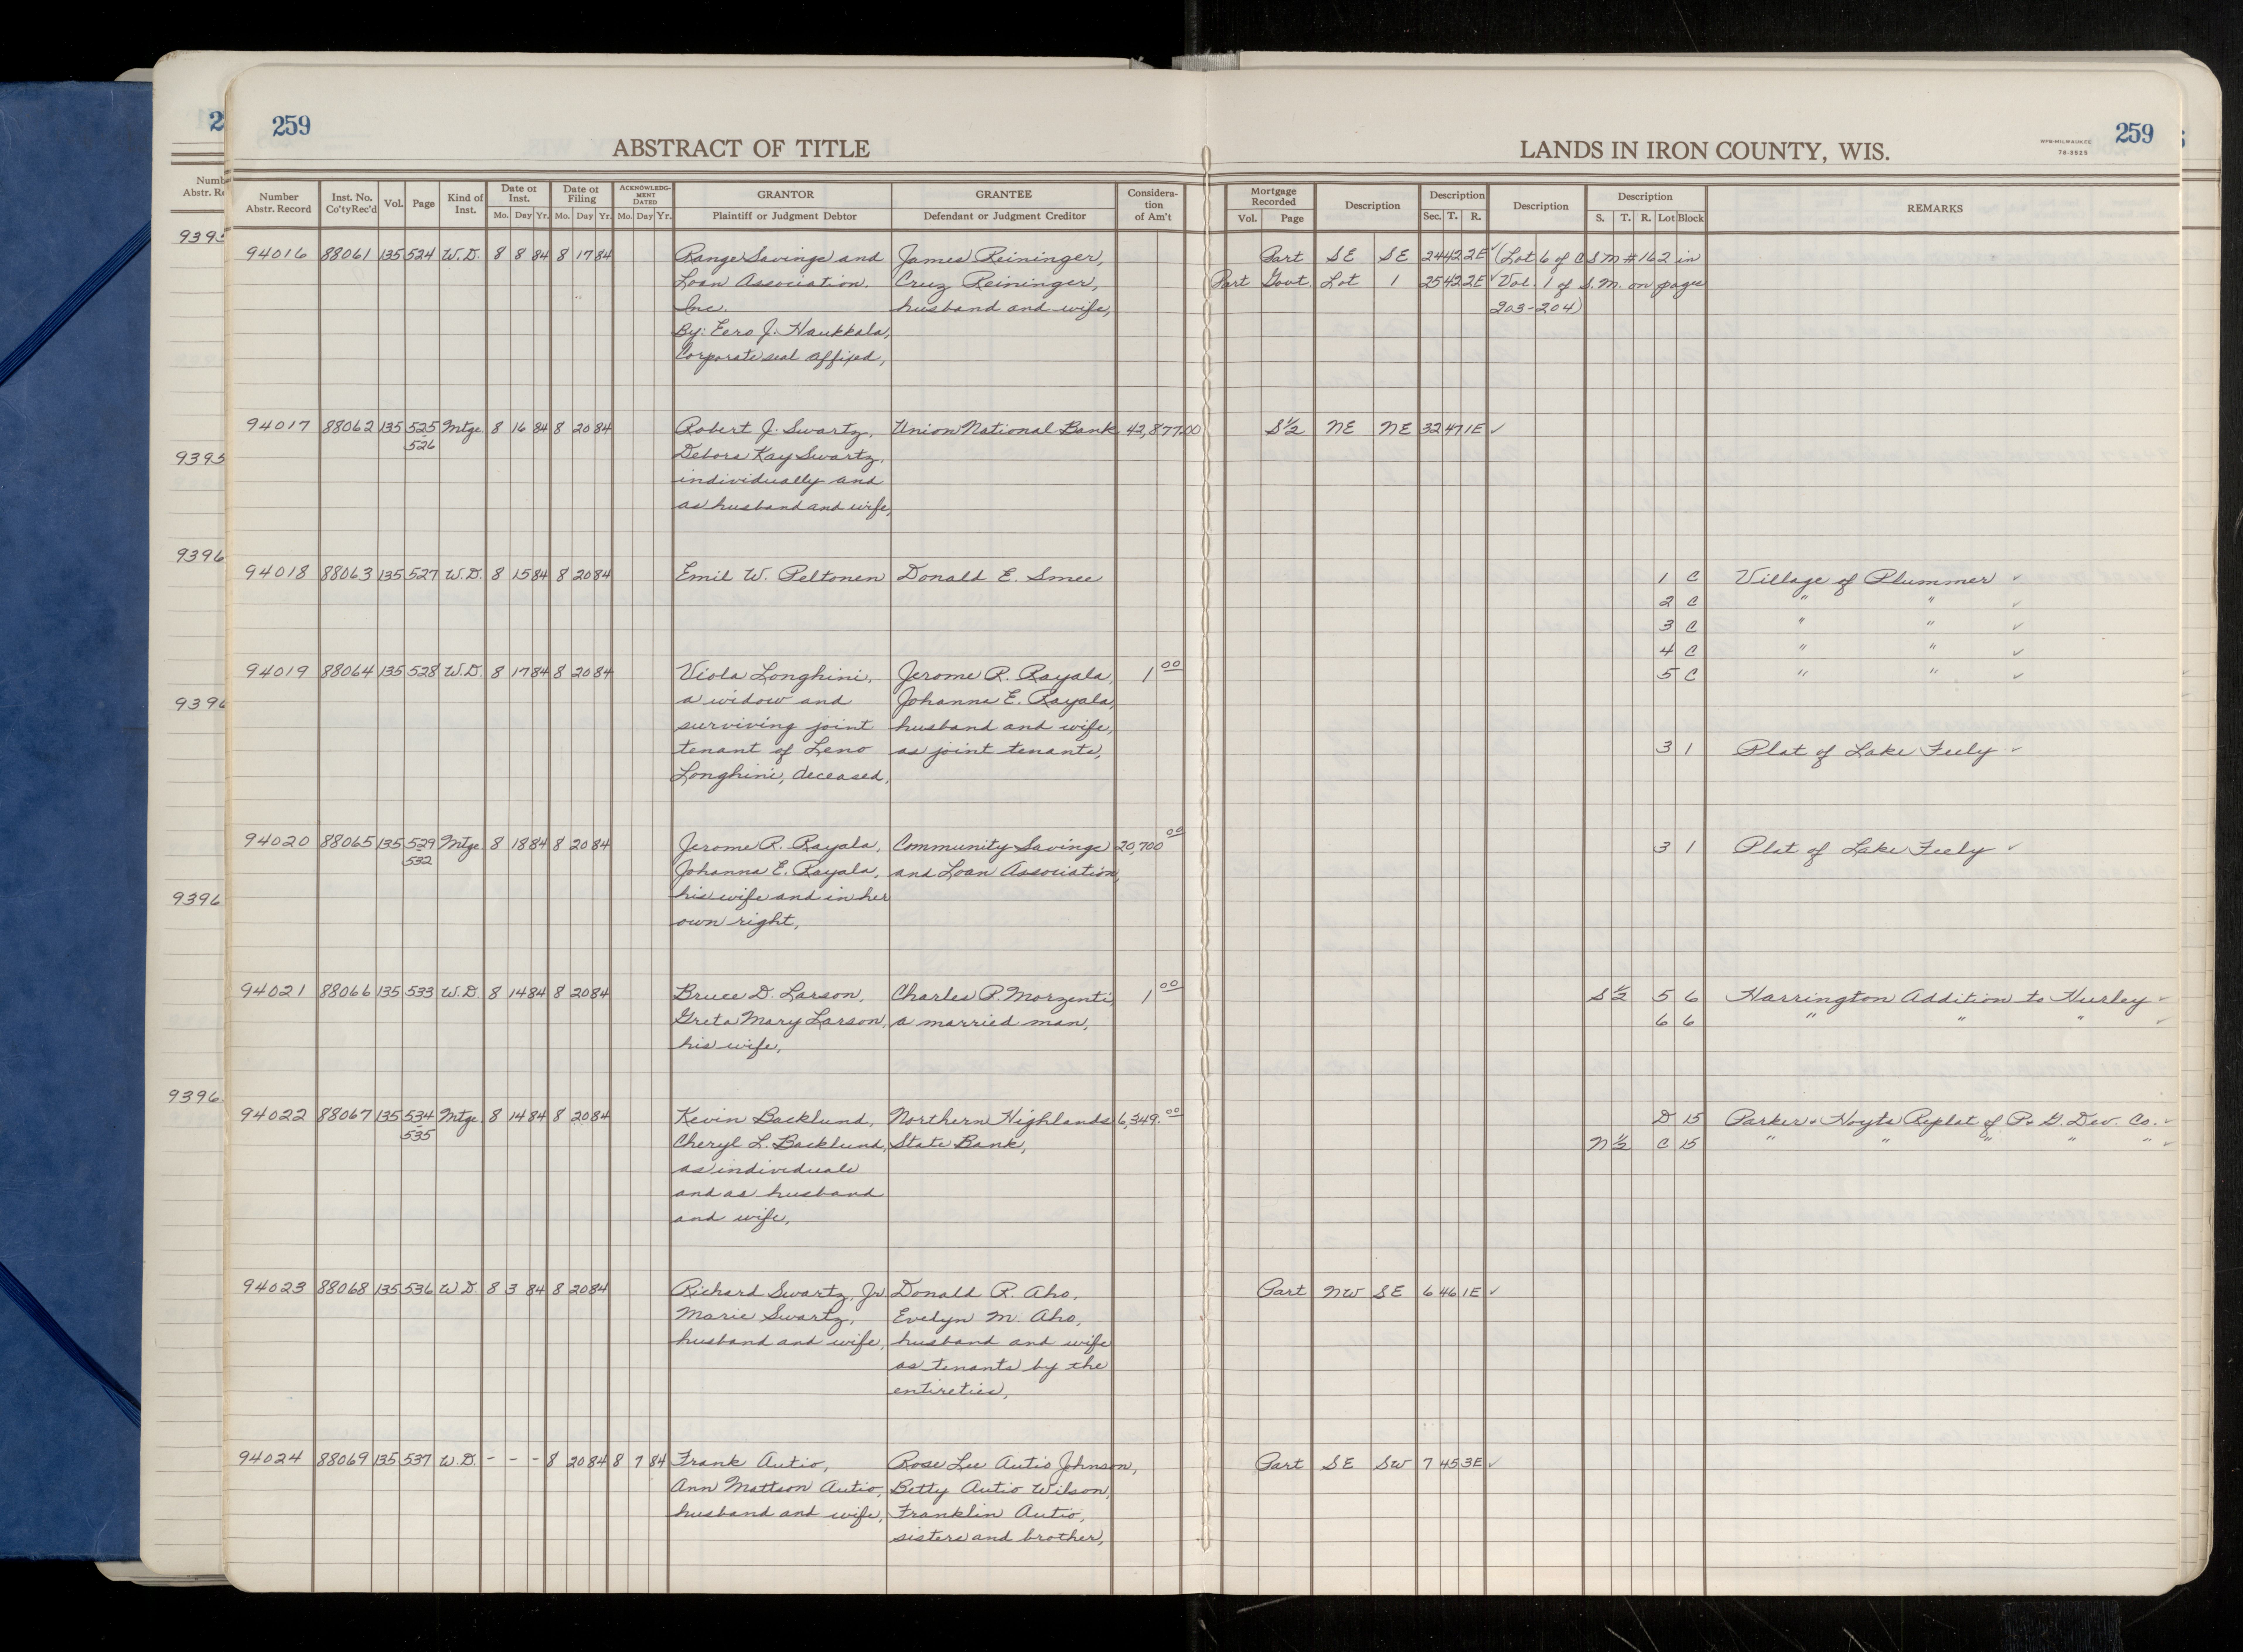 259
ABSTRACT OF TITLE
LANDS IN IRON COUNTY, WIS.
WPB-MILWAUKEE
78-3525
259
Number Abstr. Record | Inst. No. Co'ty Rec'd | Vol. | Page | Kind of Inst. | Date of Inst. Mo. Day Yr. | Date of Filing Mo. Day Yr. | ACKNOWLEDGMENT DATED Mo. Day Yr. | GRANTOR Plaintiff or Judgment Debtor | GRANTEE Defendant or Judgment Creditor | Consideration of Am't | Mortgage Recorded Vol. Page | Description | Description Sec. T. R. | Description | Description S. T. R. Lot Block | REMARKS
94016 88061 135 524 W.D. 8 8 84 8 17 84 Range Savings and James Reininger, Part SE SE 24 42 2E ✓ (Lot 6 of C.S.M # 162 in
Loan Association, Cruz Reininger, Part Govt. Lot 1 25 42 2E ✓ Vol. 1 of S.M. on pages
Inc. husband and wife, 203-204)
By: Eero J. Haukkala,
Corporate seal affixed,
94017 88062 135 525 Mtge. 8 16 84 8 20 84 Robert J. Swartz, Union National Bank 42,877.00 S½ NE NE 32 47 1E ✓
526 Debora Kay Swartz,
individually and
as husband and wife,
94018 88063 135 527 W.D. 8 15 84 8 20 84 Emil W. Peltonen Donald E. Smee 1 C Village of Plummer ✓
2 C " " ✓
3 C " " ✓
4 C " " ✓
94019 88064 135 528 W.D. 8 17 84 8 20 84 Viola Longhini, Jerome R. Rayala, 1 00 5 C " " ✓
a widow and Johanna E. Rayala,
surviving joint husband and wife,
tenant of Leno as joint tenants, 3 1 Plat of Lake Feely ✓
Longhini, deceased,
94020 88065 135 529 Mtge. 8 18 84 8 20 84 Jerome R. Rayala, Community Savings 20,700 00 3 1 Plat of Lake Feely ✓
532 Johanna E. Rayala, and Loan Association,
his wife and in her
own right,
94021 88066 135 533 W.D. 8 14 84 8 20 84 Bruce D. Larson, Charles P. Morzenti, 1 00 S½ 5 6 Harrington Addition to Hurley ✓
Greta Mary Larson, a married man, 6 6 " " " ✓
his wife,
94022 88067 135 534 Mtge. 8 14 84 8 20 84 Kevin Backlund, Northern Highlands 6,349.00 D 15 Parker & Hoyts Replat of P. & G. Dev. Co. ✓
535 Cheryl L. Backlund, State Bank, N½ C 15 " " " " " ✓
as individuals
and as husband
and wife,
94023 88068 135 536 W.D. 8 3 84 8 20 84 Richard Swartz, Jr. Donald R. Aho, Part NW SE 6 46 1E ✓
Marie Swartz, Evelyn M. Aho,
husband and wife, husband and wife
as tenants by the
entireties,
94024 88069 135 537 W.D. - - - 8 20 84 8 7 84 Frank Autio, Rose Lee Autio Johnson, Part SE SW 7 45 3E ✓
Ann Mattson Autio, Betty Autio Wilson,
husband and wife, Franklin Autio,
sisters and brother,